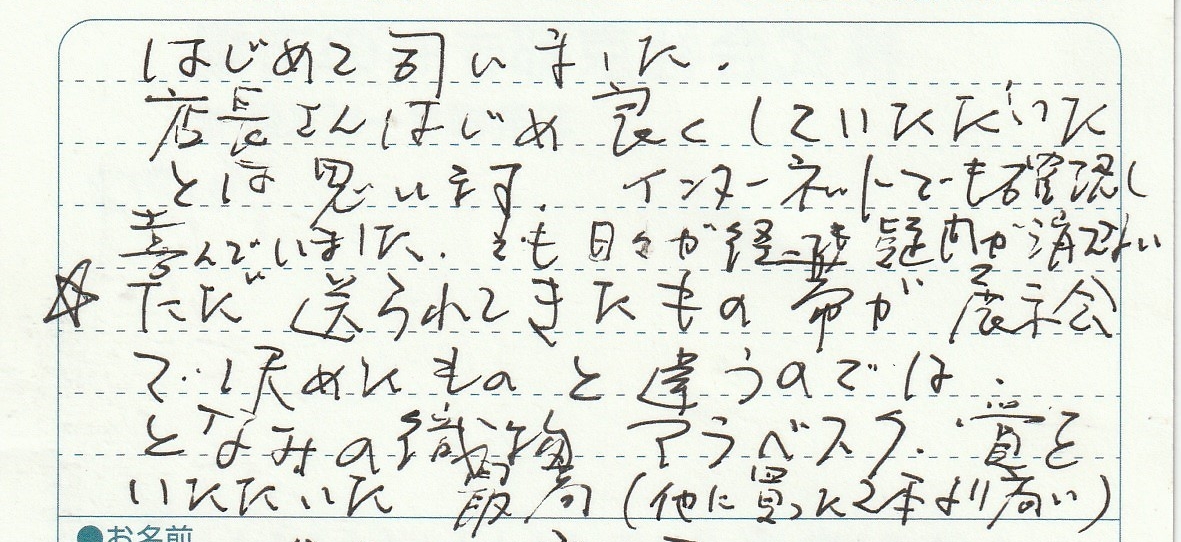 はじめて伺いました.
店長さんはじめ良くしていただいた
とは思います. インターネットでも確認し
喜んでいました. でも日々が経つ疑問が消えない
☆ ただ送られてきたもの帯が展示会
で決めたものと違うのでは.
となみの織物 アラベスク. 賞を
いただいた最高(他に買った2本より高い)
●お名前